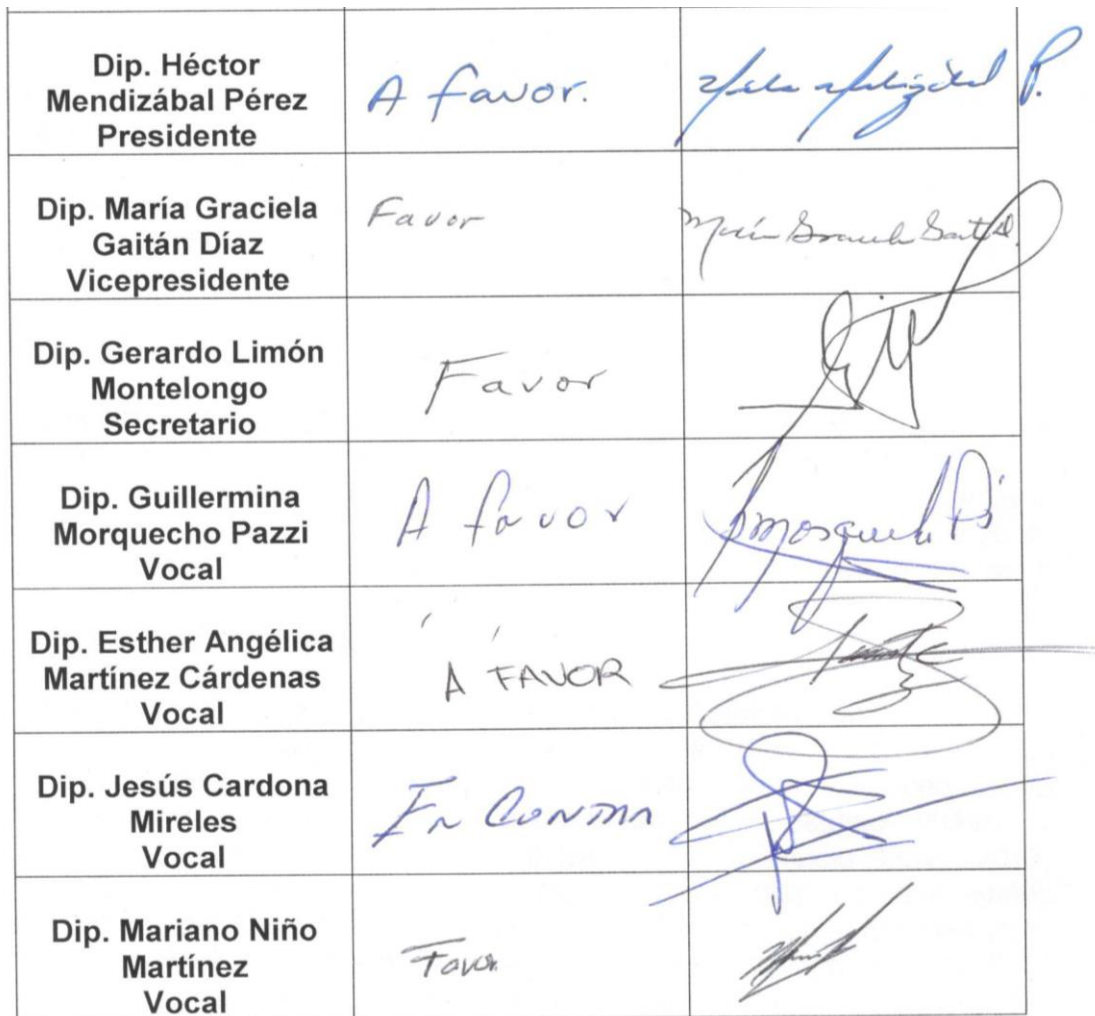 Dip. Héctor
Mendizábal Pérez
Presidente
A favor.
P.
Dip. María Graciela
Gaitán Díaz
Vicepresidente
Favor
María Graciela Gaitán D.
Dip. Gerardo Limón
Montelongo
Secretario
Favor
Dip. Guillermina
Morquecho Pazzi
Vocal
A favor
Dip. Esther Angélica
Martínez Cárdenas
Vocal
A FAVOR
Dip. Jesús Cardona
Mireles
Vocal
En Contra
Dip. Mariano Niño
Martínez
Vocal
Favor